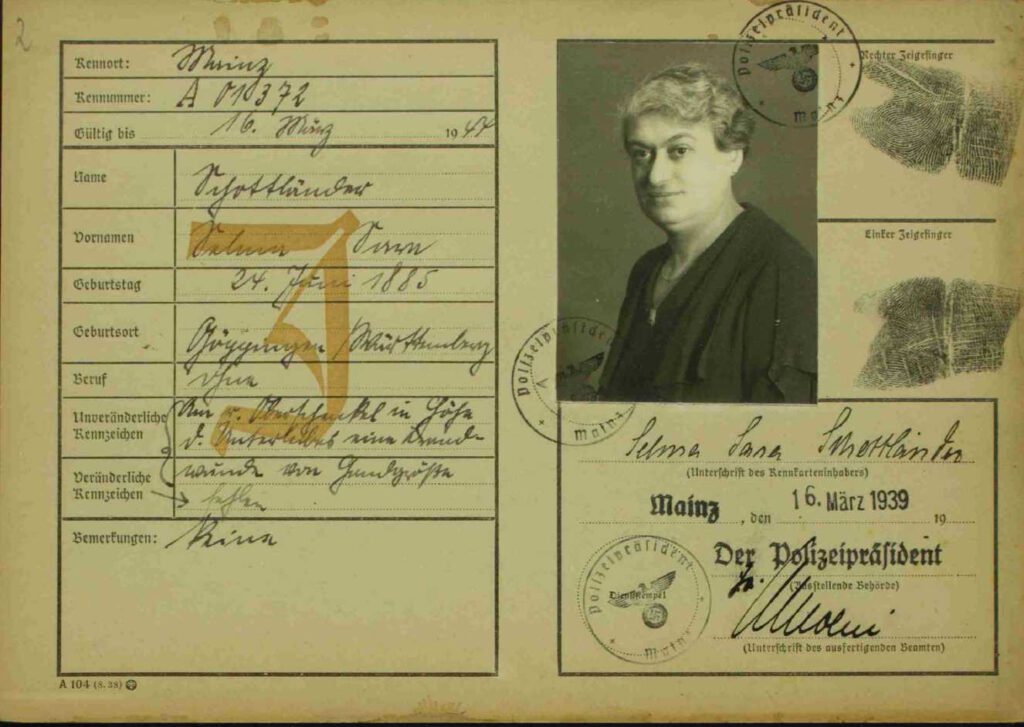 2
Kennort: Mainz
Kennummer: A 010372
Gültig bis 16. März 1944
Name Schottländer
Vornamen Selma Sara
J
Geburtstag 24. Juni 1885
Geburtsort Göppingen/Württemberg
Beruf ohne
Unveränderliche Kennzeichen
Am r. Oberschenkel in Höhe
d. Unterleibes eine Brand-
wunde von Handgröße
Veränderliche Kennzeichen
fehlen
Bemerkungen: Keine
A 104 (8. 38)
Polizeipräsident
Mainz
Rechter Zeigefinger
Linker Zeigefinger
Polizeipräsident
Mainz
Selma Sara Schottländer
(Unterschrift des Kennkarteninhabers)
Mainz, den 16. März 1939 19
Der Polizeipräsident
(Ausstellende Behörde)
Polizeipräsident
Dienststempel
Mainz
(Unterschrift des ausfertigenden Beamten)